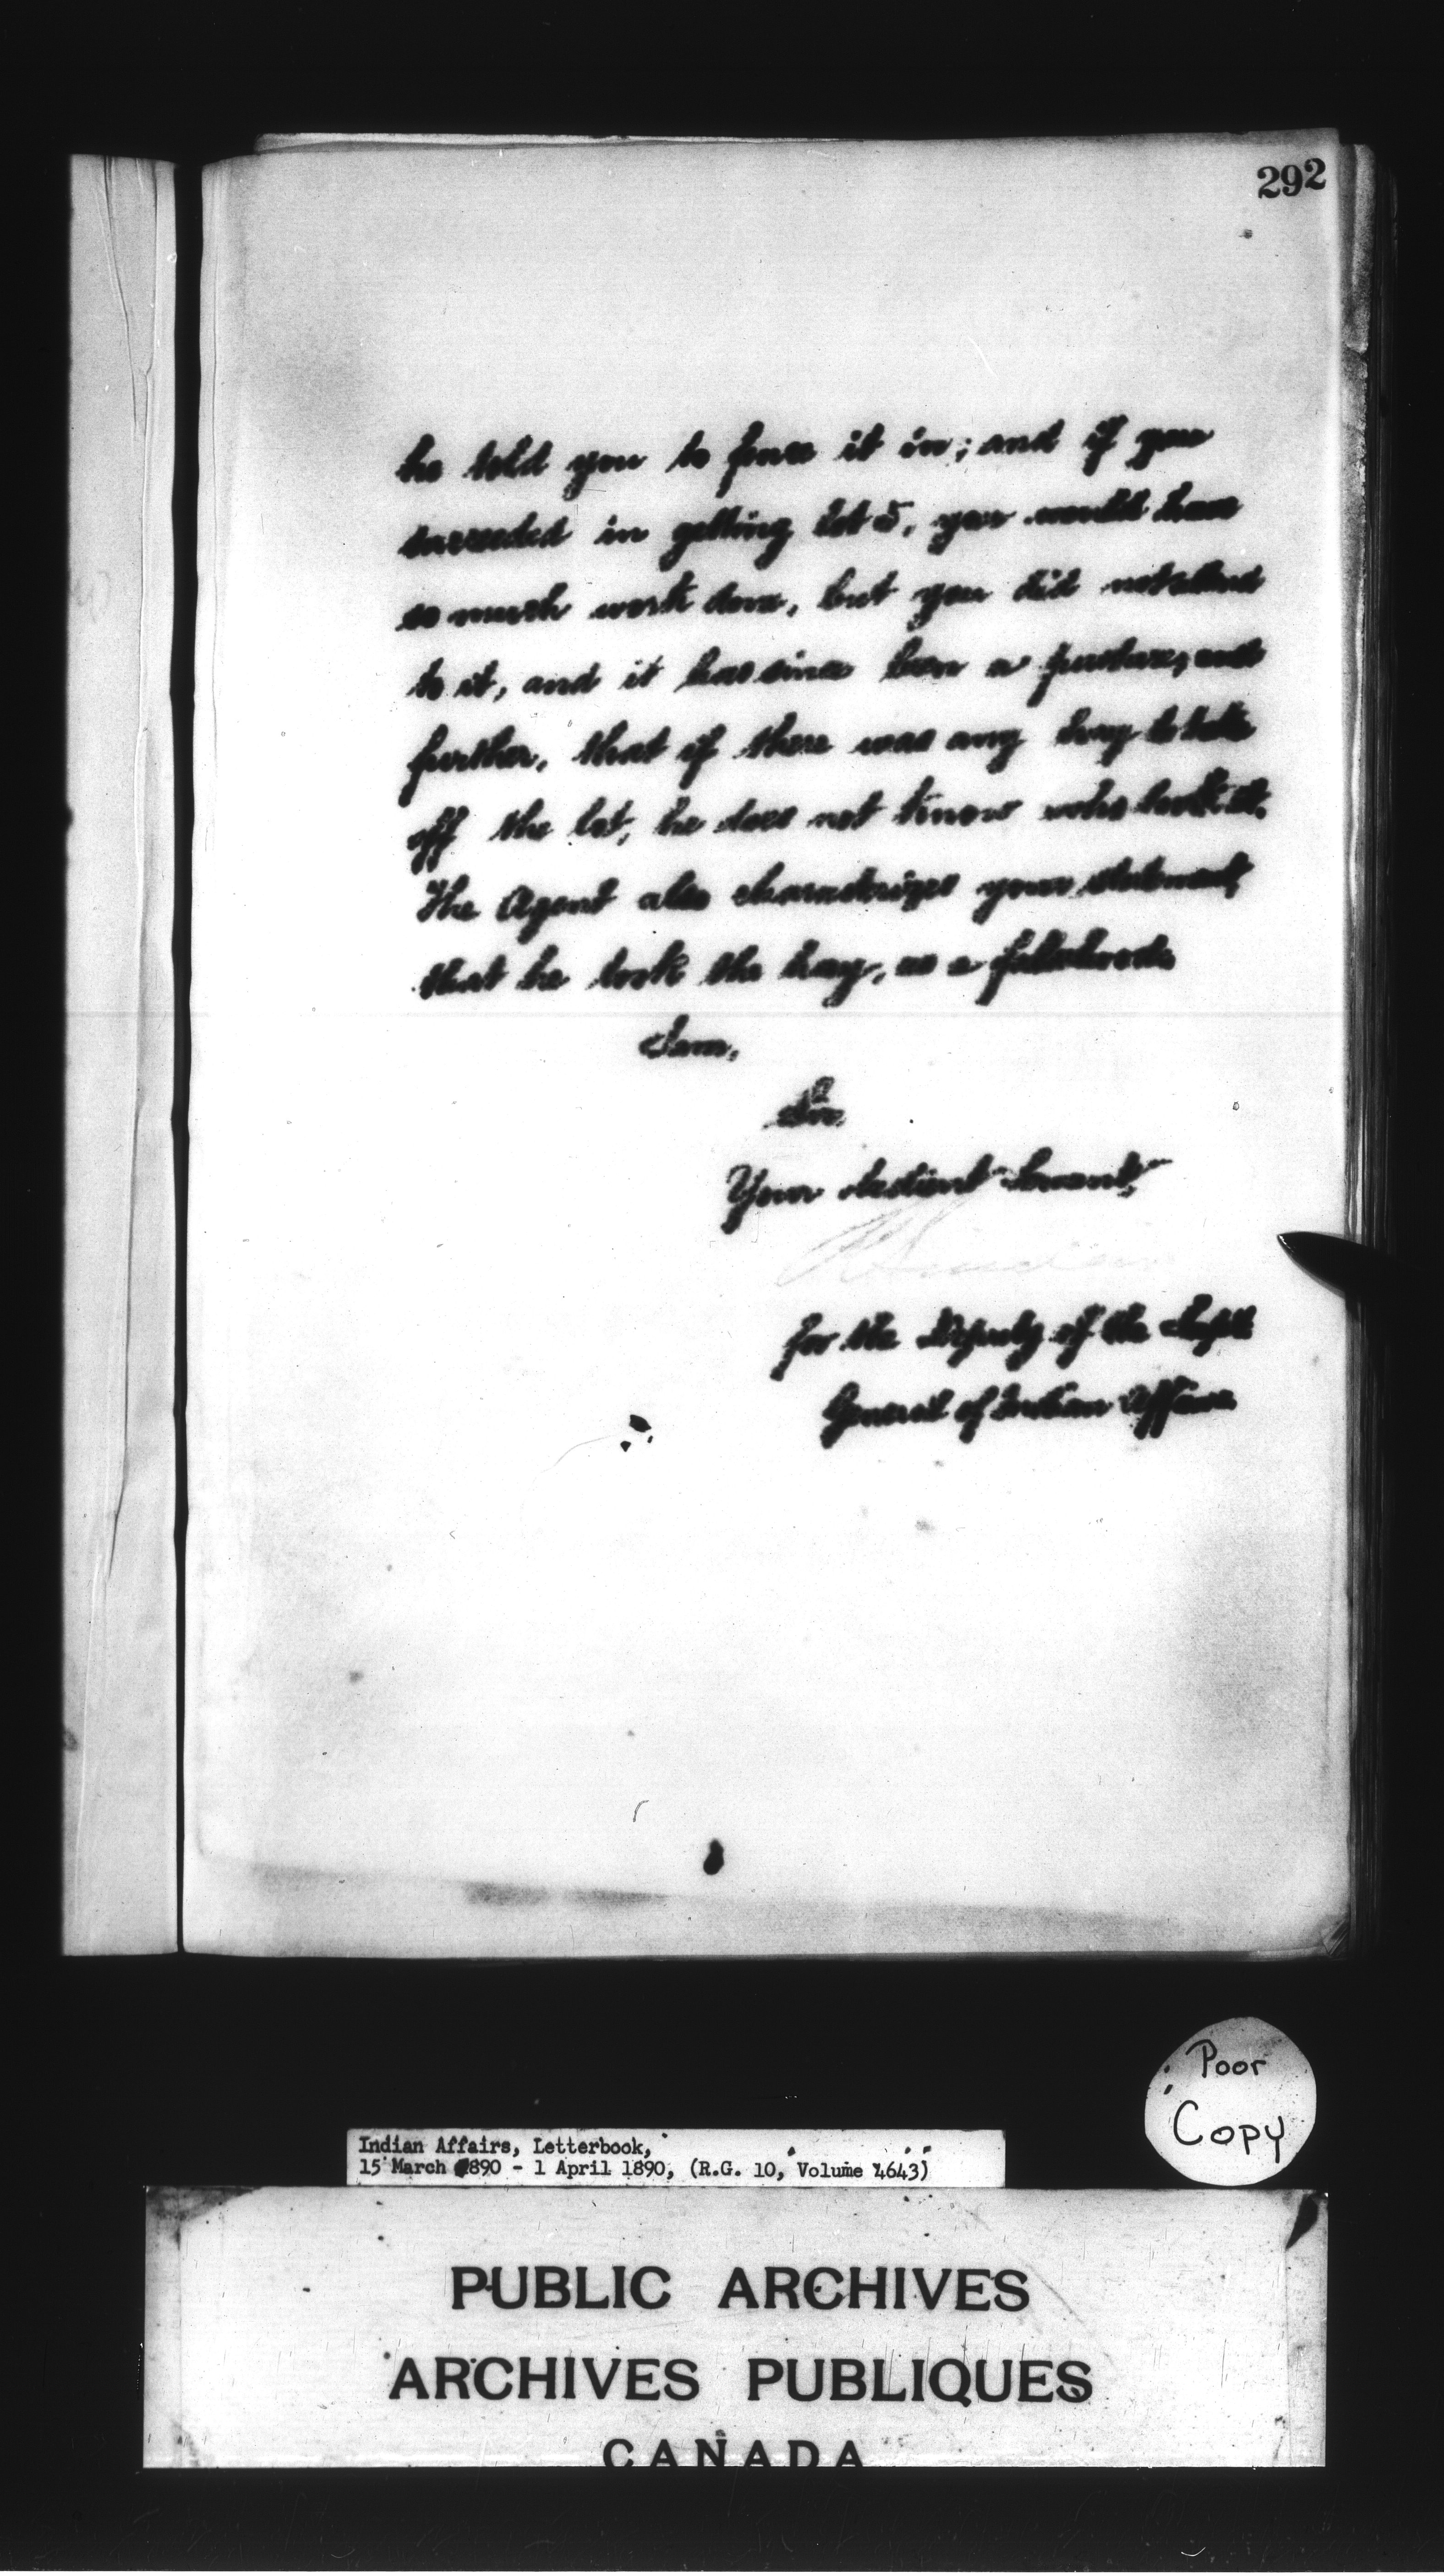 292
he told you to fence it in; and if you
succeeded in getting lot 5, you would have
so much work done, but you did not attend
to it, and it has since been a pasture, and
further, that if there was any hay to take
off the lot, he does not know who took it.
The Agent also characterizes your statement,
that he took the hay, as a falsehood.
I am,
Sir,
Your obedient Servant,
for the Deputy of the Supt
General of Indian Affairs
Poor
Copy
Indian Affairs, Letterbook,
15 March 1890 - 1 April 1890, (R.G. 10, Volume 4643)
PUBLIC ARCHIVES
ARCHIVES PUBLIQUES
CANADA